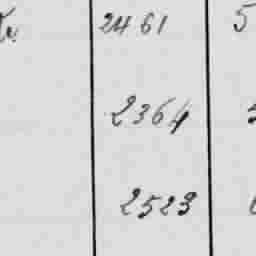 2461 5
2364
2523